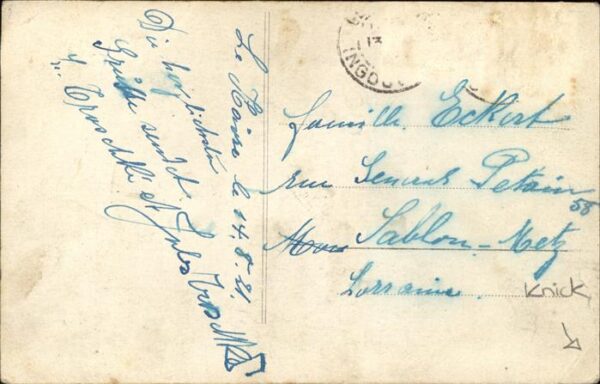 Le Havre le 14.8.21.
Die herzlichsten
Grüße sendet
Jules
INGOU
Famille Eckert
rue General Petain
58
Sablon-Metz
Lorraine.
Knick